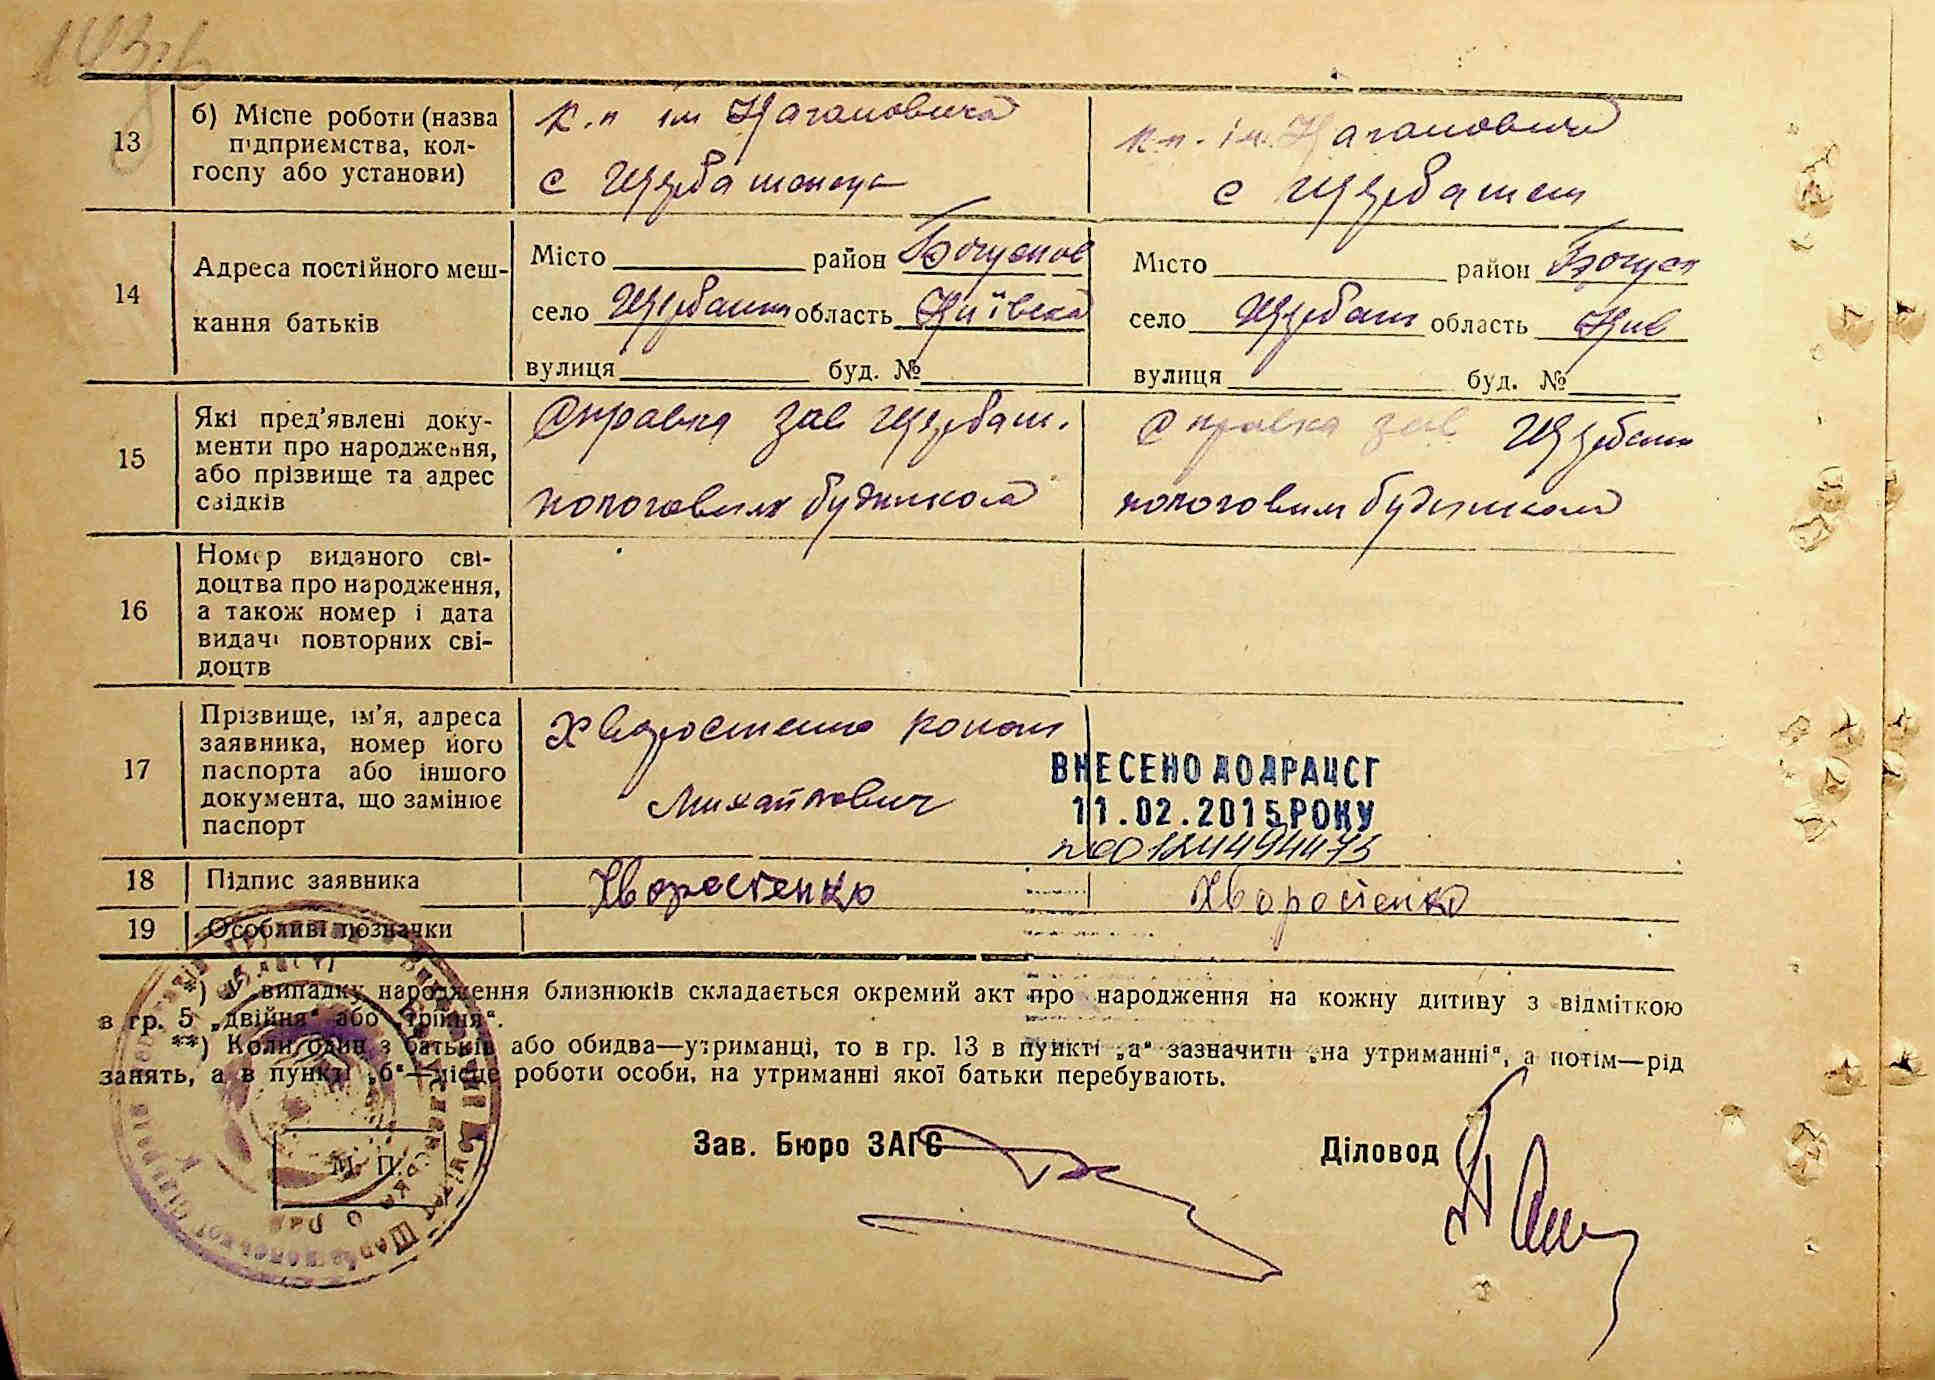 13
б) Місце роботи (назва
підприємства, кол-
госпу або установи)
к.п ім Кагановича
с Щербашенці
к.п. ім. Кагановича
с Щербашен
14
Адреса постійного меш-
кання батьків
Місто район Богуслав
село Щербаш область Київска
вулиця буд. №
Місто район Богусл
село Щербаш область Київ
вулиця буд. №
15
Які пред'явлені доку-
менти про народження,
або прізвище та адрес
свідків
Справка зав Щербаш.
пологовим будинком
Справка зав Щербаш
пологовим будинком
16
Номер виданого сві-
доцтва про народження,
а також номер і дата
видачі повторних сві-
доцтв
17
Прізвище, ім'я, адреса
заявника, номер його
паспорта або іншого
документа, що замінює
паспорт
Хворостенко
Михайлович
ВНЕСЕНО ДО ДРАЦСГ
11.02.2015 РОКУ
18
Підпис заявника
Хворостенко
Хворостенко
19
Особливі позначки
*) У випадку народження близнюків складається окремий акт про народження на кожну дитину з відміткою
в гр. 5 „двійня“ або „трійня“.
**) Коли один з батьків або обидва—утриманці, то в гр. 13 в пункті „а“ зазначити „на утриманні“, а потім—рід
занять, а в пункті „б“—місце роботи особи, на утриманні якої батьки перебувають.
М. П.
Зав. Бюро ЗАГС
Діловод